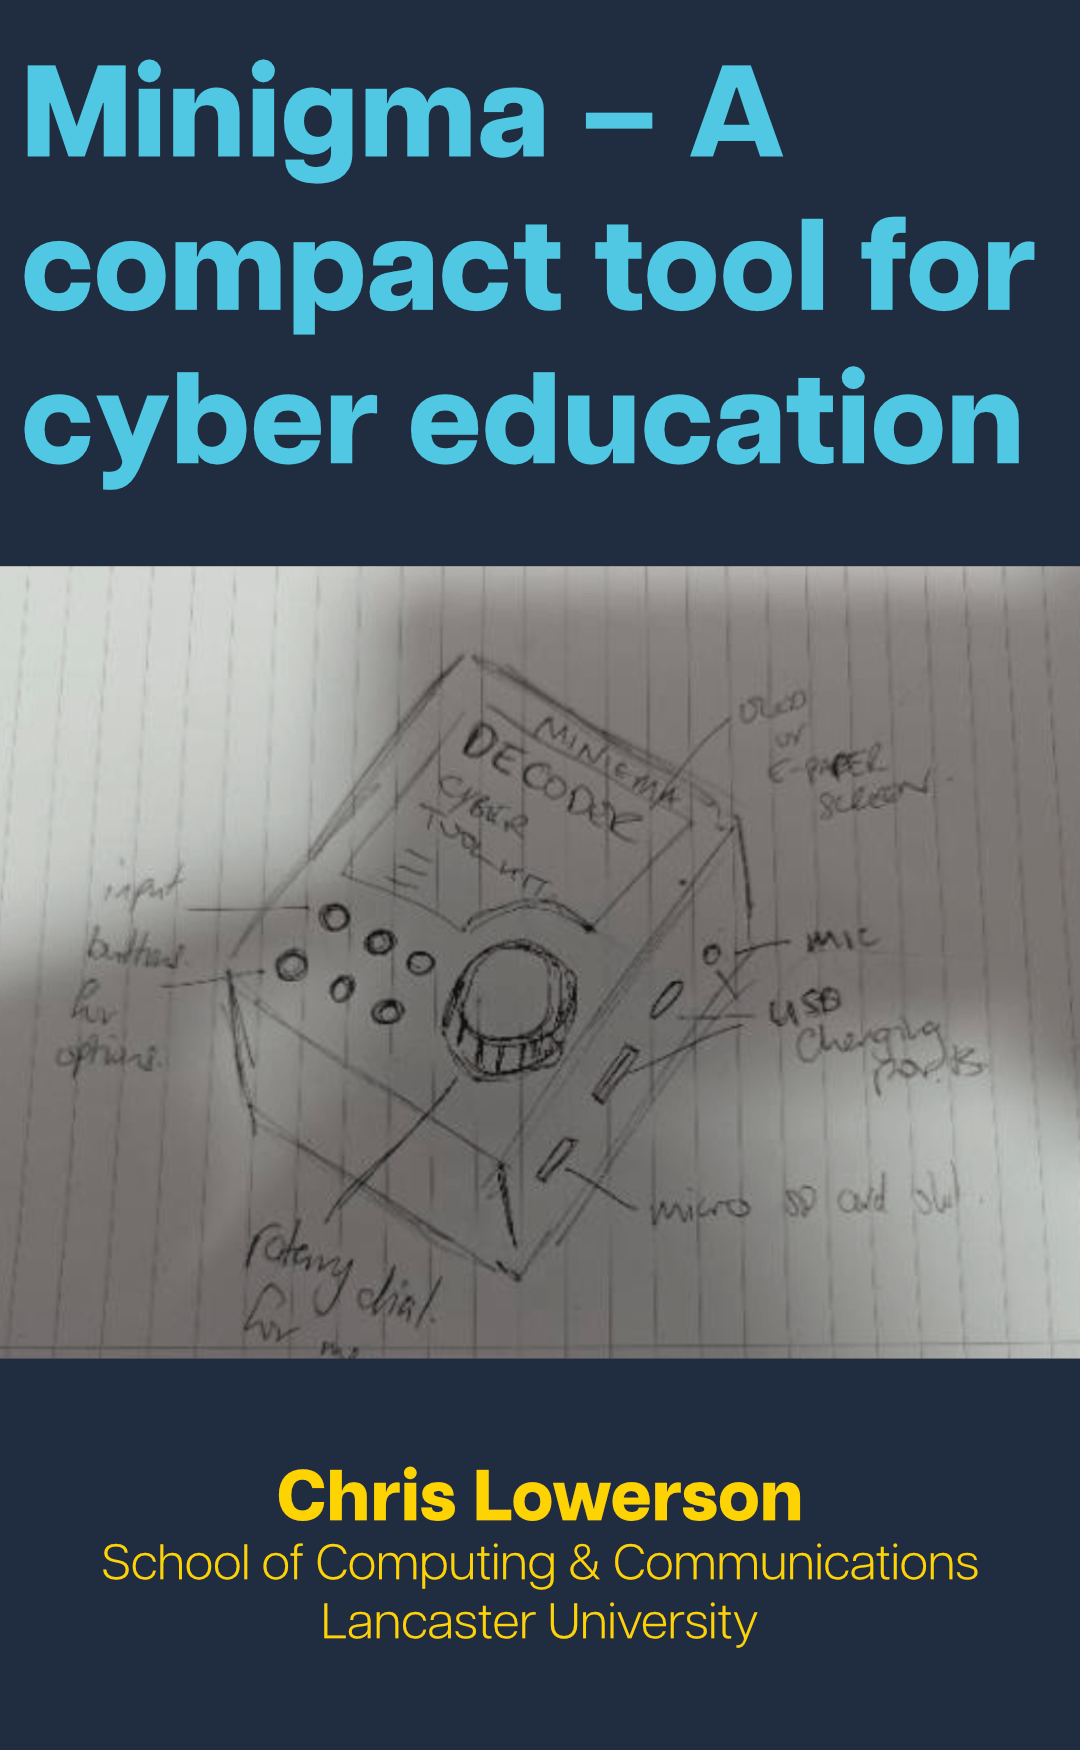 Minigma – A
compact tool for
cyber education
MINIGMA
DECODER
CYBER
TOOL KIT
OLED
or
E-PAPER
SCREEN
input
buttons
for
options.
MIC
USB
Charging
ports
micro SD card slot.
rotary dial.
for
Chris Lowerson
School of Computing & Communications
Lancaster University